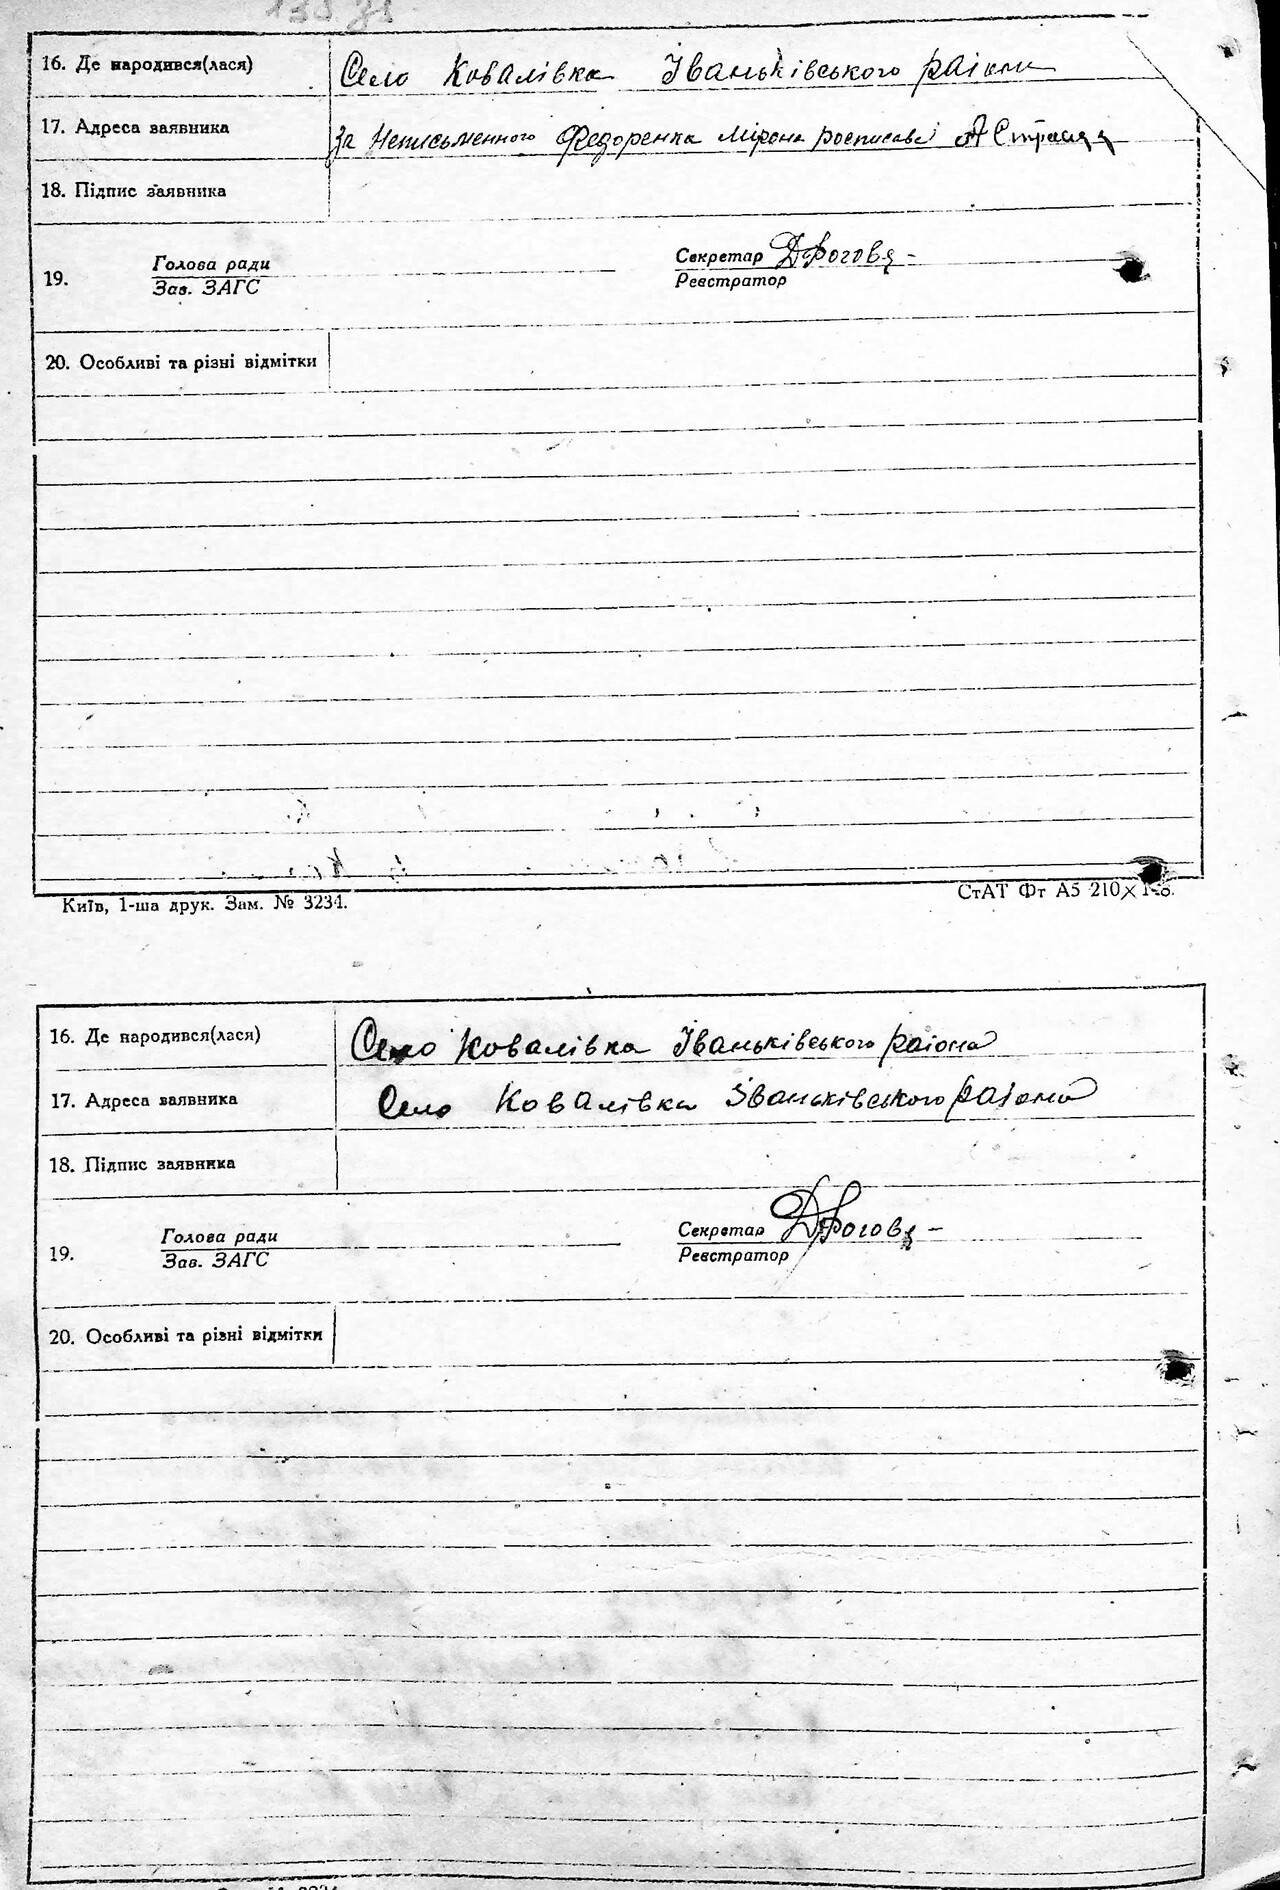 16. Де народився(лася) Село Ковалівка Іваньківського раіона
17. Адреса заявника за неписьменного Федоренка Мірона росписавсі
18. Підпис заявника
Голова ради Секретар
19. Зав. ЗАГС Реєстратор
20. Особливі та різні відмітки
Київ, 1-ша друк. Зам. № 3234. СтАТ Фт А5 210×
16. Де народився(лася) Село Ковалівка Іваньківського раіона
17. Адреса заявника Село Ковалівка Іваньківського раіона
18. Підпис заявника
Голова ради Секретар
19. Зав. ЗАГС Реєстратор
20. Особливі та різні відмітки